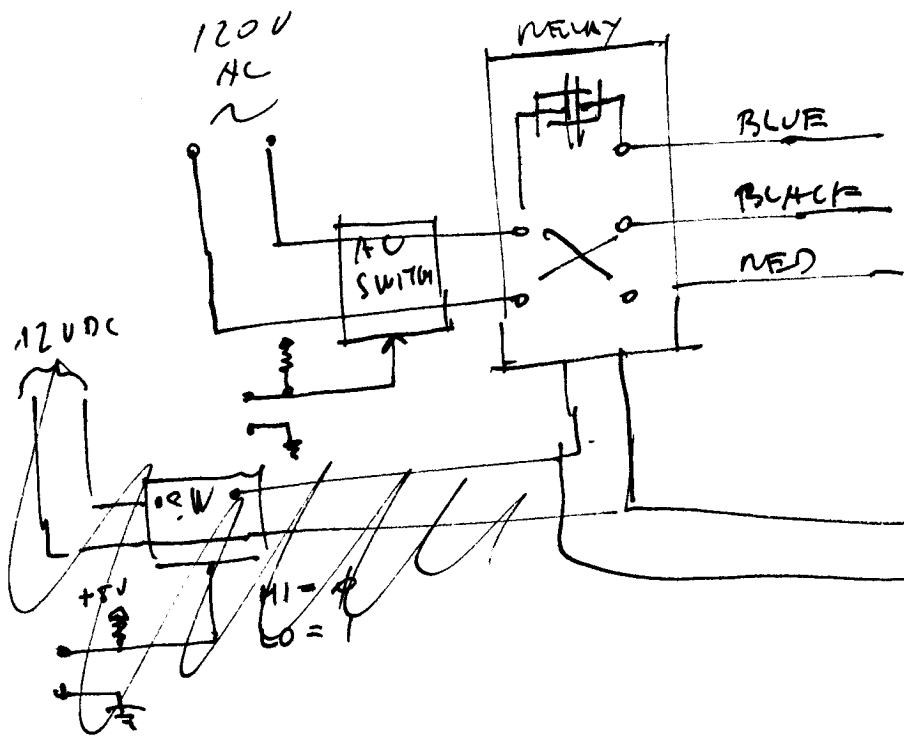 120V
AC
~
RELAY
BLUE
BLACK
RED
AC
SWITCH
12VDC
SW
+5V
HI =
LO = 1